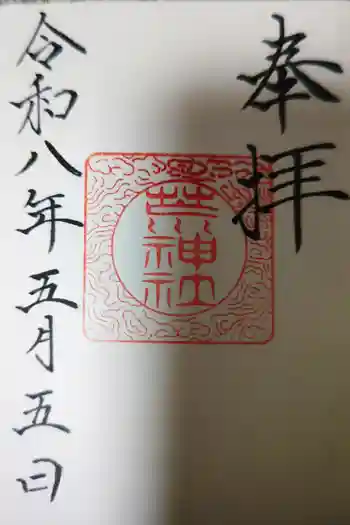 奉拝
荒神社
令和八年五月五日